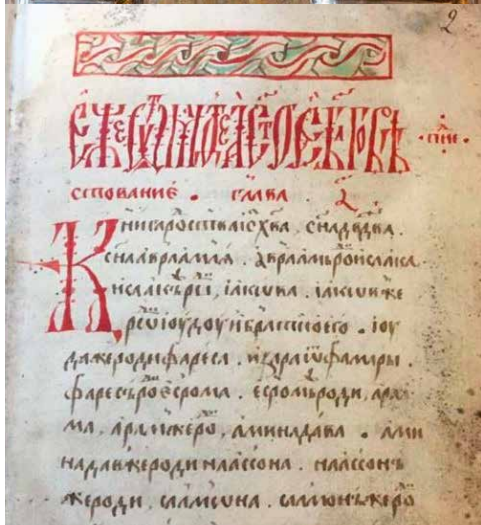 2
Е҆́же сꙋть ѿ матѳеа ст҃ое бл҃говѣ
ствование . глава . а҃
Книга родства і҆с҃ х҃ва . сн҃а дв҃два .
сн҃а авраамля . авраамъ роⷣ исаака
исаакъ роⷣ , іаковꙋ . іаковъ же
роⷣ іоудоу и братию его . іоу
да же роди фареса . и зара ѿ фамары .
фаресъ роⷣ есрома . есромъ роди , ара
ма , арам же роⷣ , аминадава . ами
надав же роди наассона . наассонъ
же роди , салмона . салмонъ же роⷣ